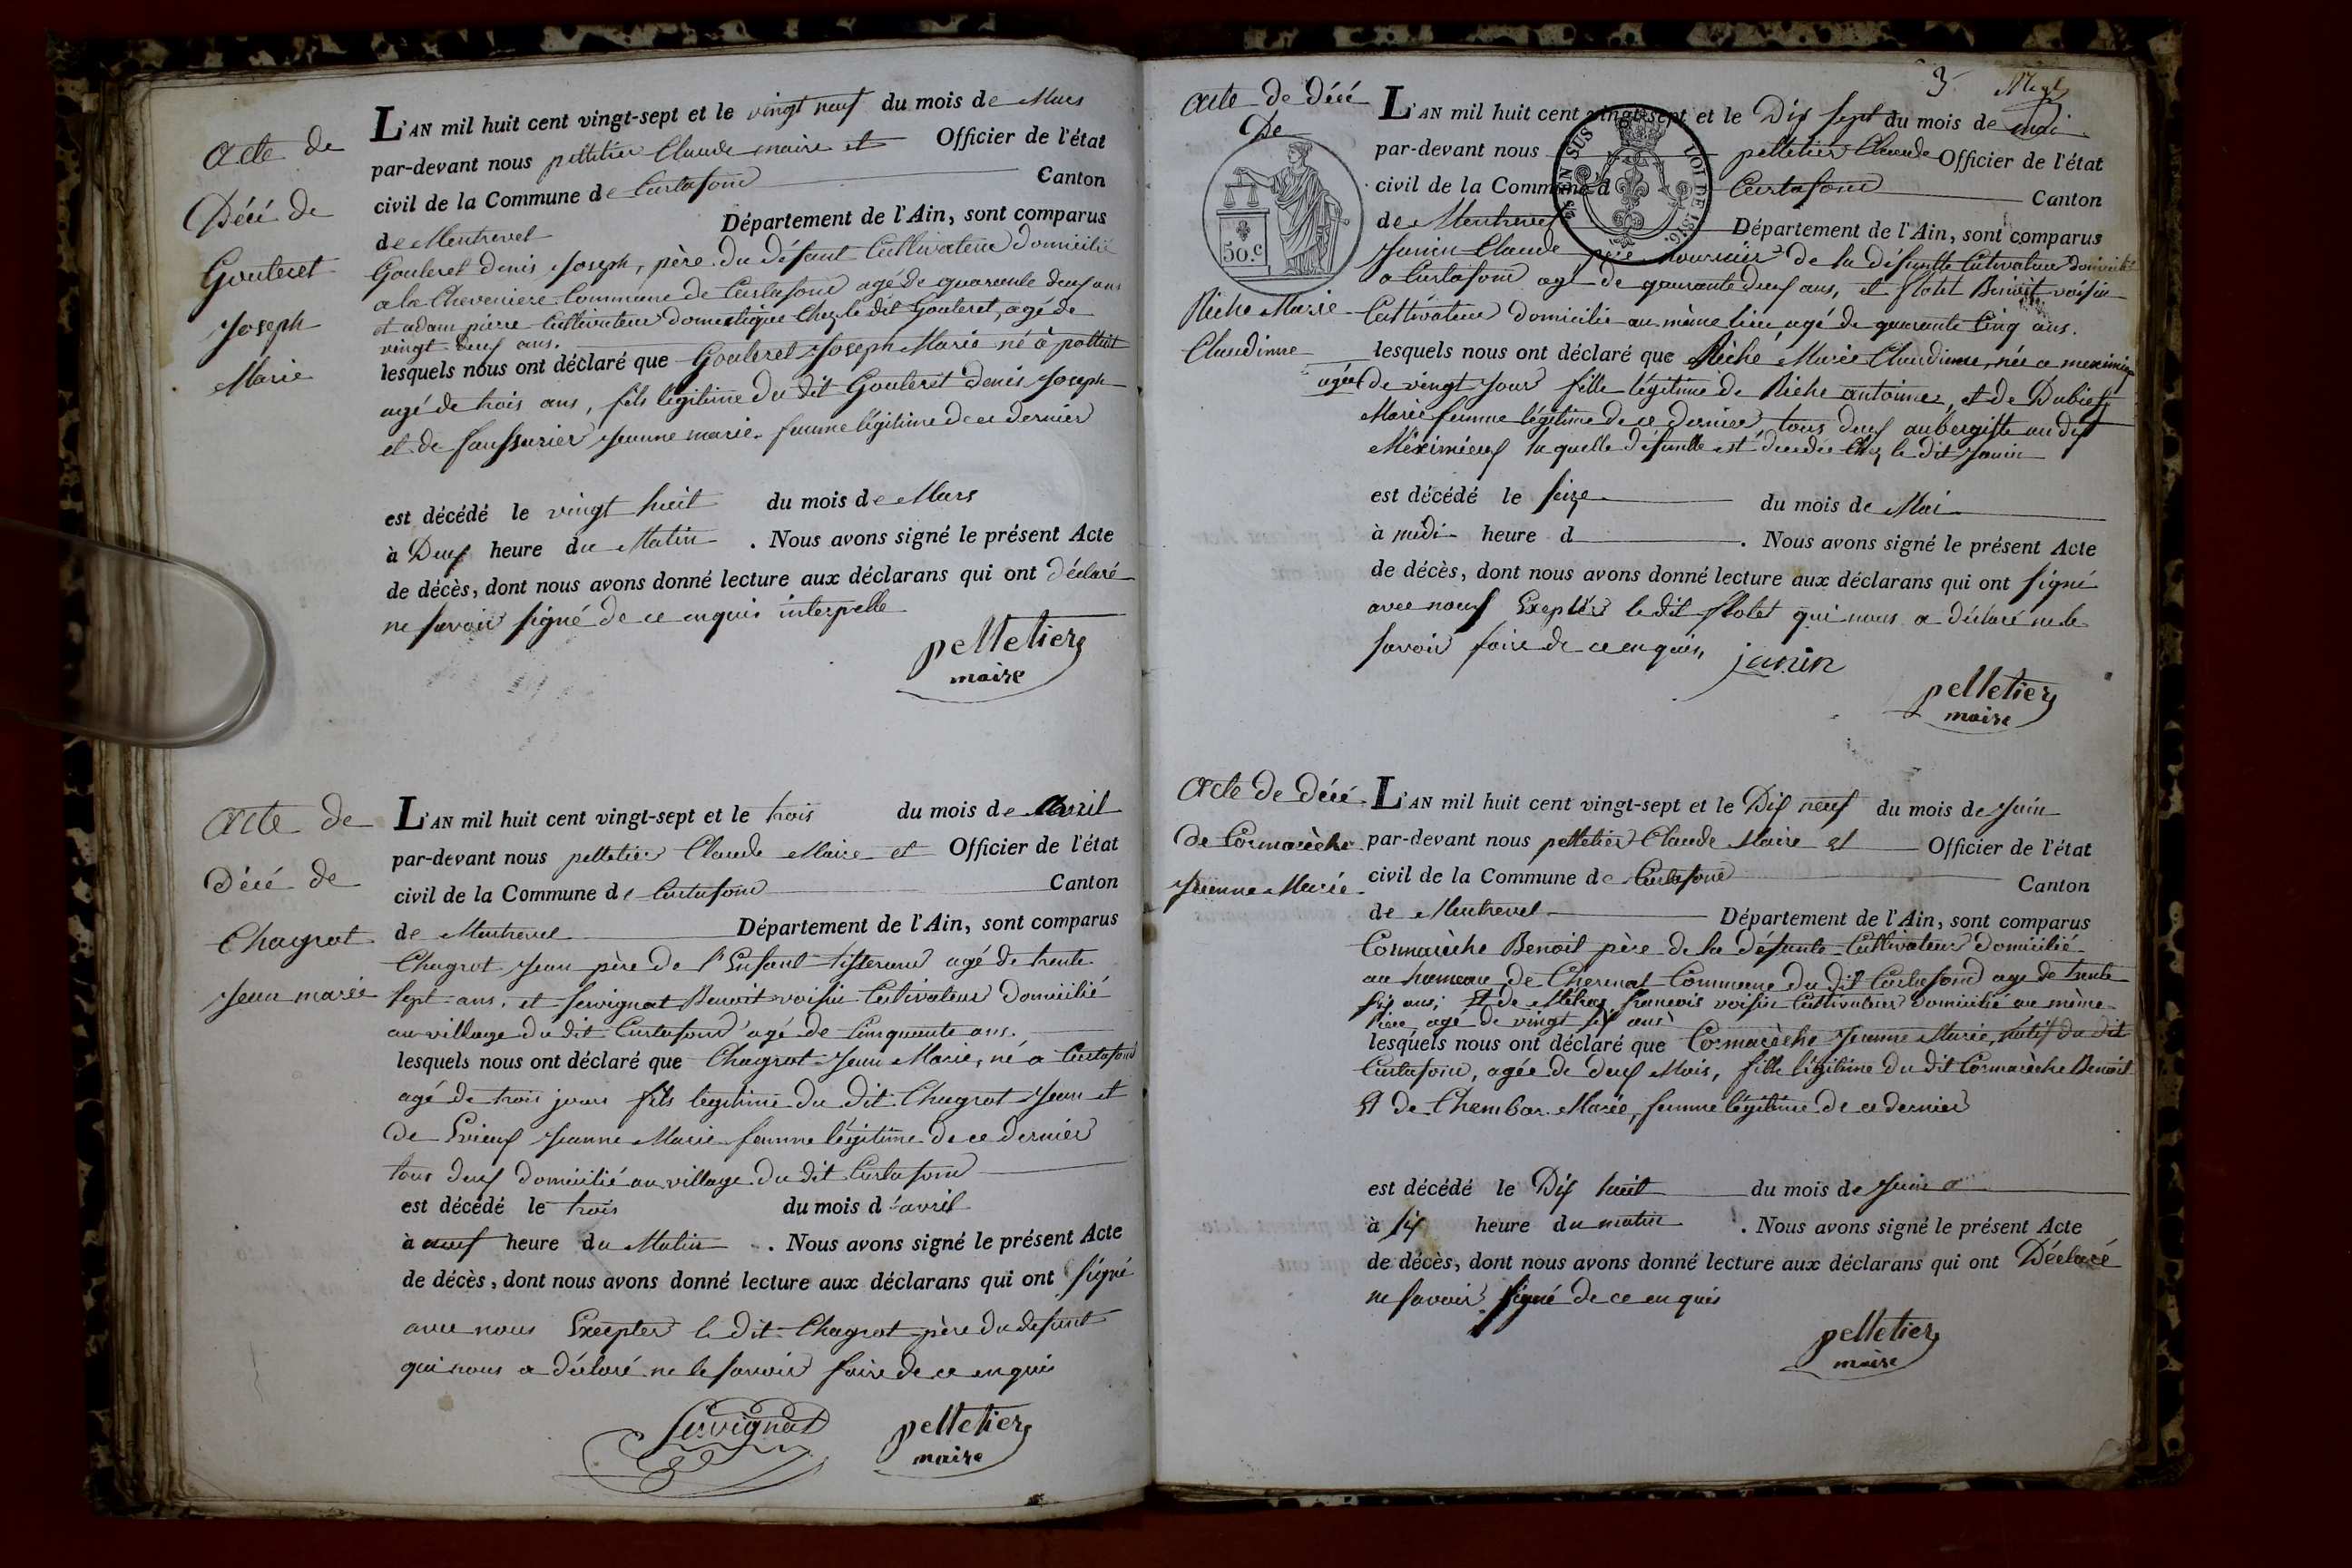 Acte de
Décé de
Gouteret
Joseph
Marie
L'AN mil huit cent vingt-sept et le vingt neuf du mois de Mars
par-devant nous pelletier Claude maire et Officier de l'état
civil de la Commune de Curtafond Canton
de Montrevel Département de l'Ain, sont comparus
Gouteret denis Joseph, père du défunt Cultivateur domicilié
a la Cheveniere Commune de Curtafond agé de quarante deux ans
et adam pierre Cultivateur domestique Chez le dit Gouteret, agé de
vingt deux ans.
lesquels nous ont déclaré que Gouteret Joseph Marie né à polliat
agé de trois ans, fils légitime du dit Gouteret denis Joseph
et de faussurier Jeanne marie femme légitime de ce dernier
est décédé le vingt huit du mois de Mars
à Deux heure du Matin . Nous avons signé le présent Acte
de décès, dont nous avons donné lecture aux déclarans qui ont déclaré
ne savoir signé de ce enquis interpelle
pelletier
maire
Acte de
Décé de
Chagrot
Jean marie
L'AN mil huit cent vingt-sept et le trois du mois de Avril
par-devant nous pelletier Claude Maire et Officier de l'état
civil de la Commune de Curtafond Canton
de Montrevel Département de l'Ain, sont comparus
Chagrot Jean père de l'Enfant tisserand agé de trente
sept ans, et servignat Benoit voisin Cultivateur domicilié
au village du dit Curtafond agé de Cinquante ans.
lesquels nous ont déclaré que Chagrot Jean Marie, né a Curtafond
agé de trois jours fils legitime du dit Chagrot Jean et
de Jeanne Marie femme légitime de ce dernier
tous deux domicilié au village du dit Curtafond
est décédé le trois du mois d'avril
à neuf heure du Matin . Nous avons signé le présent Acte
de décès, dont nous avons donné lecture aux déclarans qui ont signé
avec nous Excepter le dit Chagrot père du defunt
qui nous a déclaré ne le savoir faire de ce enquis
Servignat
pelletier
maire
3
Acte de décé
De
50.c
Riche Marie
Claudinne
L'AN mil huit cent vingt-sept et le Dix sept du mois de mai
par-devant nous pelletier Claude Officier de l'état
civil de la Commune d Curtafond Canton
de Montrevel Département de l'Ain, sont comparus
EN SUS
LOI DE 1816.
Janin Claude père nourricier de la défuntte Cultivateur domicilié
a Curtafond agé de quarante deux ans, et flotet Benoit voisin
Cultivateur domicilié au même lieu agé de quarante Cinq ans.
lesquels nous ont déclaré que Riche Marie Claudinne, née a meximieux
agée de vingt jour fille légitime de Riche antoinne, et de Dubief
Marie femme légitime de ce dernier, tous deux aubergiste au dit
Méximieux la quelle défuntte est décedée Chez le dit Janin
est décédé le seize du mois de Mai
à midi heure d . Nous avons signé le présent Acte
de décès, dont nous avons donné lecture aux déclarans qui ont signé
avec nous Exepter le dit flotet qui nous a déclaré ne le
savoir faire de ce enquis,
janin
pelletier
maire
Acte de décé
de Cormarèche
Jeanne Marie
L'AN mil huit cent vingt-sept et le Dix neuf du mois de Juin
par-devant nous pelletier Claude Maire et Officier de l'état
civil de la Commune de Curtafond Canton
de Montrevel Département de l'Ain, sont comparus
Cormarèche Benoit père de la défunte Cultivateur domicilié
au hameau de Commune du dit Curtafond age de trente
six ans; Et de francois voisin Cultivateur domicilié au même
lieu agé de vingt six ans
lesquels nous ont déclaré que Cormarèche Jeanne Marie, natif du dit
Curtafond, agée de deux Mois, fille légitime du dit Cormarèche Benoit
Et de Marie, femme légitime de ce dernier
est décédé le Dix huit du mois de Juin
à six heure du matin . Nous avons signé le présent Acte
de décès, dont nous avons donné lecture aux déclarans qui ont Déclaré
ne savoir signé de ce enquis
pelletier
maire